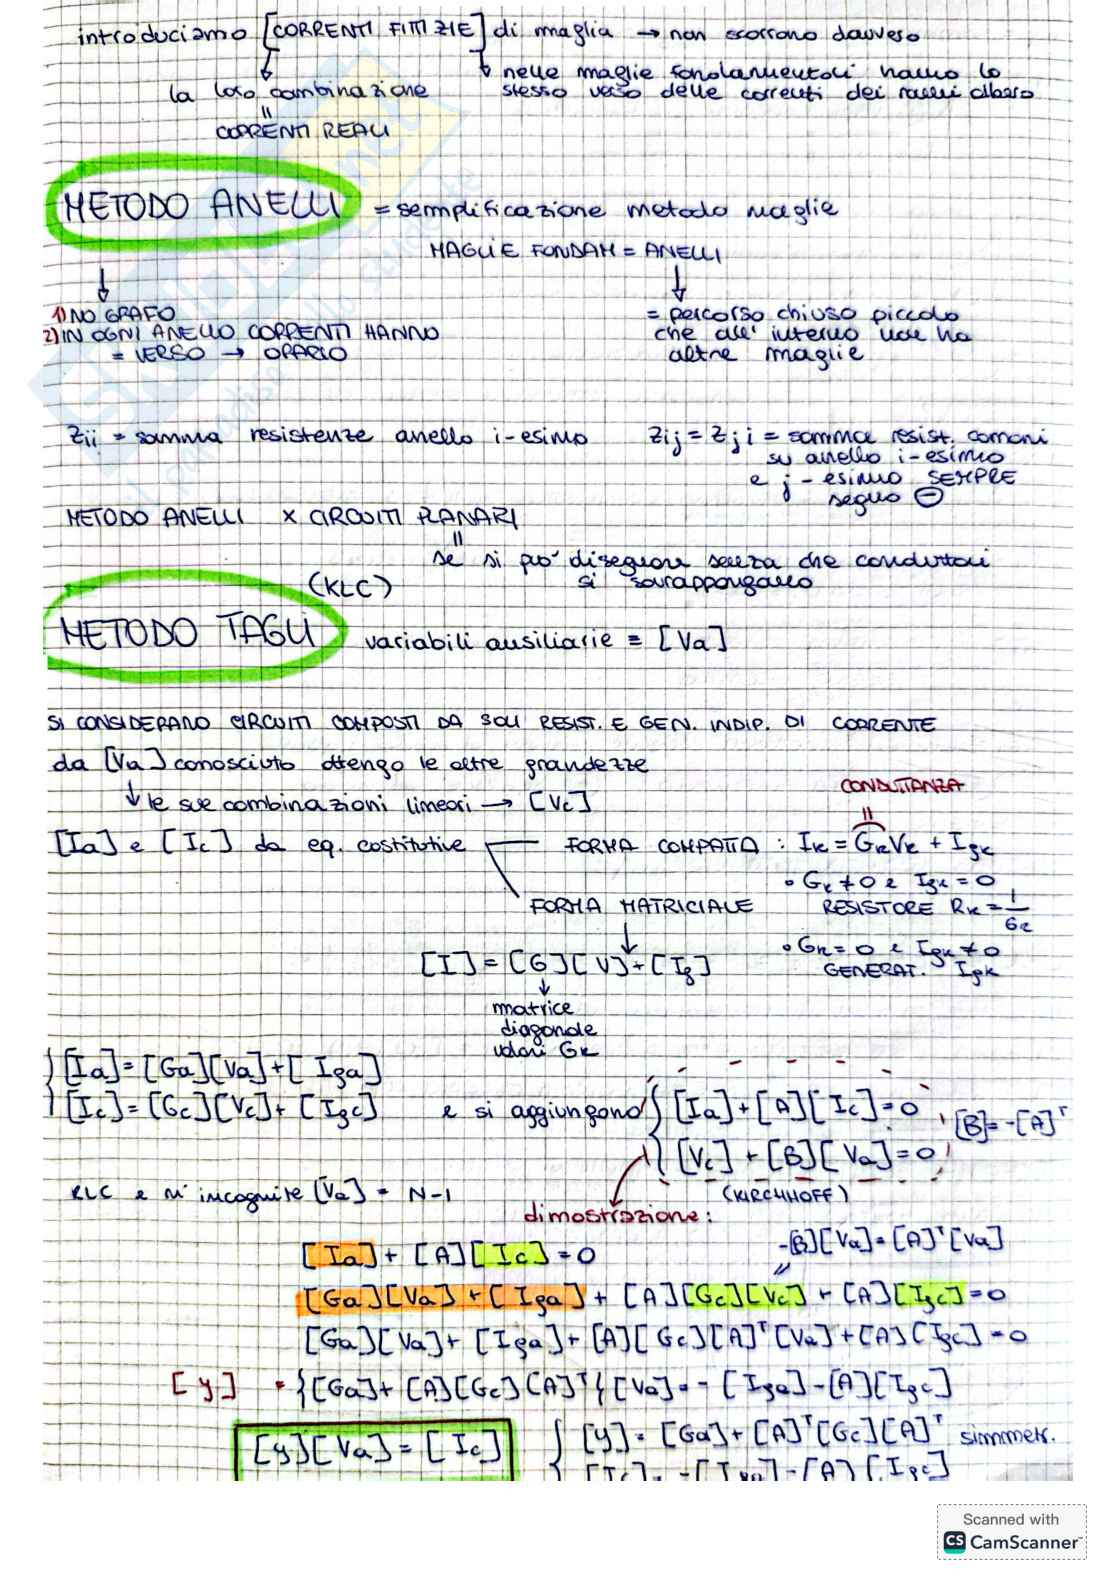 introduciamo [CORRENTI FITTIZIE] di maglia → non scorrono davvero
↓ la loro combinazione
=
CORRENTI REALI
↓ nelle maglie fondamentali hanno lo
stesso verso delle correnti dei rami albero
METODO ANELLI = semplificazione metodo maglie
MAGLIE FONDAM = ANELLI
↓
1) NO GRAFO
2) IN OGNI ANELLO CORRENTI HANNO
= VERSO → ORARIO
↓
= percorso chiuso piccolo
che all' interno non ha
altre maglie
Zii = somma resistenze anello i-esimo
Zij = Zji = somma resist. comuni
su anello i-esimo
e j-esimo SEMPRE
segno ⊖
METODO ANELLI x CIRCUITI PLANARI
=
se si può disegnare senza che conduttori
si sovrappongano
(KLC)
METODO TAGLI variabili ausiliarie = [Va]
SI CONSIDERANO CIRCUITI COMPOSTI DA SOLI RESIST. E GEN. INDIP. DI CORRENTE
da [Va] conosciuto ottengo le altre grandezze
↓ le sue combinazioni lineari → [Vc]
[Ia] e [Ic] da eq. costitutive
CONDUTTANZA
=
FORMA COMPATTA : Ik = GkVk + Igk
• Gk ≠ 0 e Igk = 0
RESISTORE Rk = 1/Gk
• Gk = 0 e Igk ≠ 0
GENERAT. Igk
FORMA MATRICIALE
↓
[I] = [G][V] + [Ig]
↓
matrice
diagonale
valori Gk
{ [Ia] = [Ga][Va] + [Iga]
[Ic] = [Gc][Vc] + [Igc]
e si aggiungono { [Ia] + [A][Ic] = 0
[Vc] + [B][Va] = 0
[B] = -[A]ᵀ
(KIRCHHOFF)
KLC e n° incognite [Va] = N-1
dimostrazione:
[Ia] + [A][Ic] = 0
-[B][Va] = [A]ᵀ[Va]
=
[Ga][Va] + [Iga] + [A][Gc][Vc] + [A][Igc] = 0
[Ga][Va] + [Iga] + [A][Gc][A]ᵀ[Va] + [A][Igc] = 0
[y] = {[Ga] + [A][Gc][A]ᵀ{ [Va] = -[Iga] - [A][Igc]
[y][Va] = [Ic]
{ [y] = [Ga] + [A]ᵀ[Gc][A]ᵀ simmetr.
[Ic] = -[Iga] - [A][Igc]
Scanned with
CS CamScanner